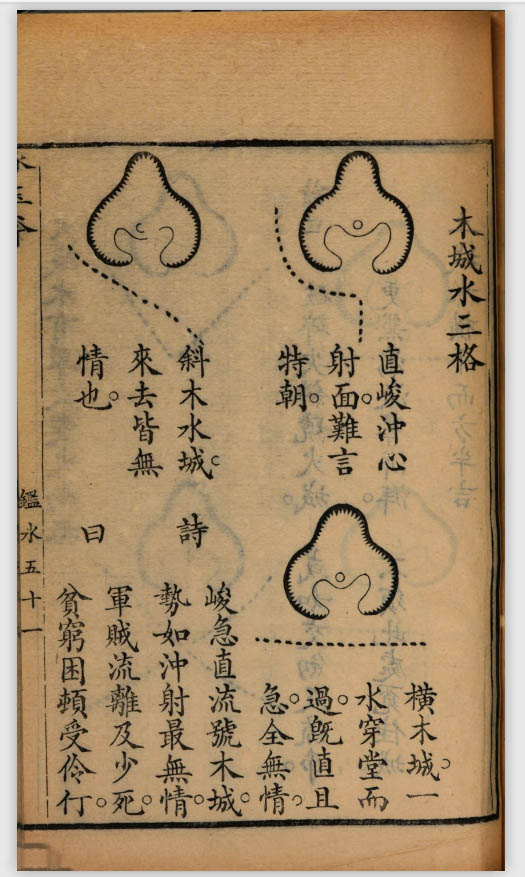 木城水三格
直峻沖心
射面難言。
特朝。
橫木城。一
水穿堂而
過。旣直且
急。全無情。
斜木水城。
來去皆無
情也。
詩
曰
峻急直流號木城。
勢如沖射最無情。
軍賊流離及少死。
貧窮困頓受伶仃。
鑑水五十一